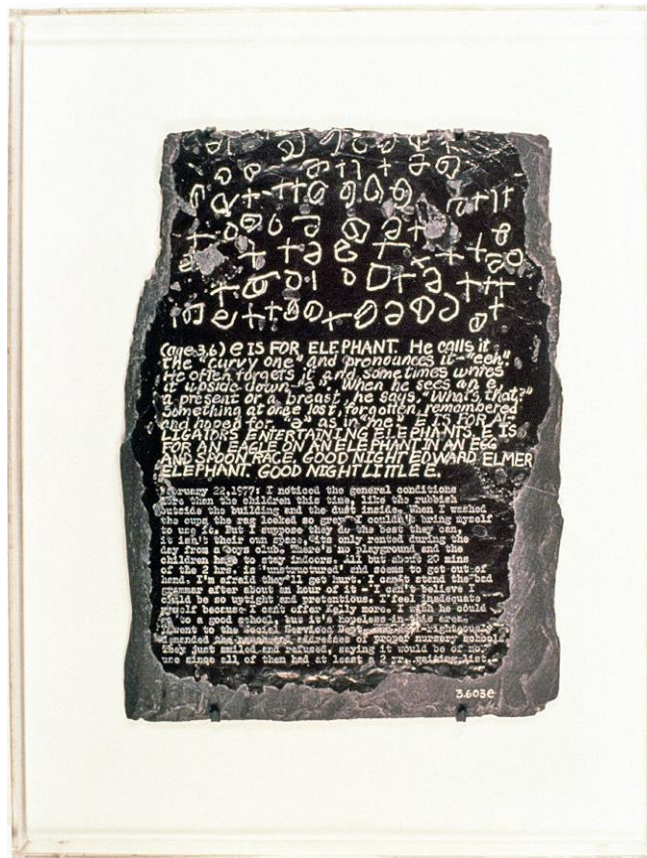 (age 3.6) e IS FOR ELEPHANT. He calls it
the "curvy one" and pronounces it "eeh"
He often forgets it and sometimes writes
it upside down - ə. When he sees an e,
a present or a breast, he says, "What's that?"
Something at once lost, forgotten, remembered
and hoped for - 'e' as in "me". E IS FOR AL-
LIGATORS ENTERTAINING ELEPHANTS. E IS
FOR AN EAGLE ON AN ELEPHANT IN AN EGG
AND SPOON RACE. GOOD NIGHT EDWARD ELMER
ELEPHANT. GOOD NIGHT LITTLE E.
February 22,1977: I noticed the general conditions
more than the children this time, like the rubbish
outside the building and the dust inside. When I washed
the cups the rag looked so grey I couldn't bring myself
to use it. But I suppose they do the best they can,
it isn't their own space, its only rented during the
day from a boys club. There's no playground and the
children have to stay indoors. All but about 20 mins
of the 2 hrs. is 'unstructured' and seems to get out of
hand. I'm afraid they'll get hurt. I can't stand the bad
grammar after about an hour of it - I can't believe I
could be so uptight and pretentious. I feel inadequate
myself because I can't offer Kelly more. I wish he could
go to a good school, but it's hopeless in this area.
I went to the Social Services Dept. and
demanded the names and addresses of proper nursery schools
they just smiled and refused, saying it would be of no
use since all of them had at least a 2 yr. waiting list.
3.603e